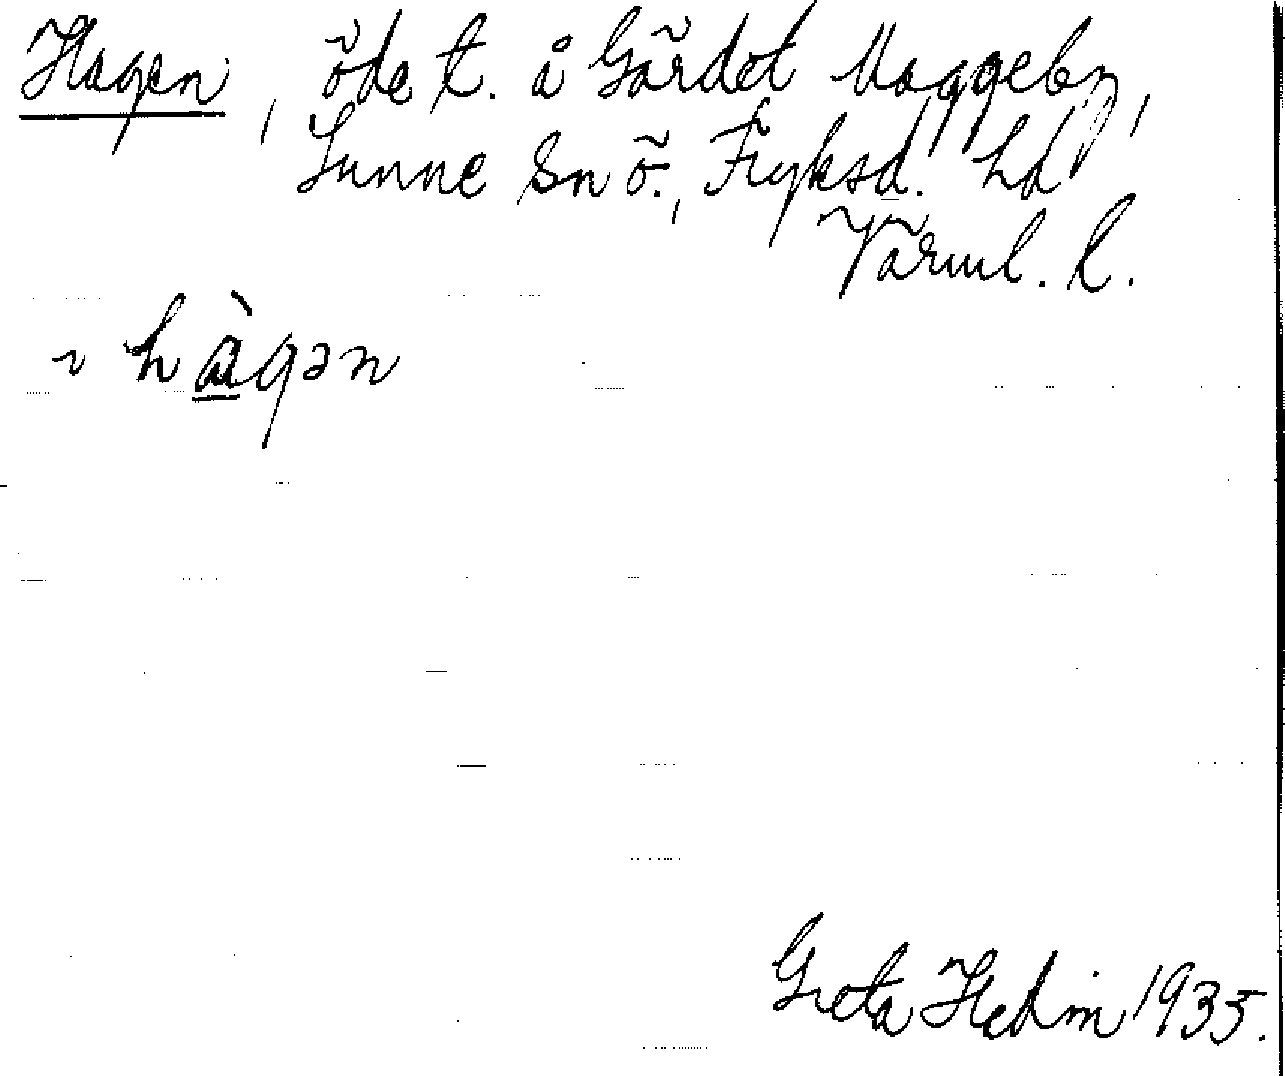 Hagen, öde t. å Gärdet Maggeby,
Sunne Sn ö., Fryksd. hd
Värml. l.
hàgən
Greta Hedin 1935.